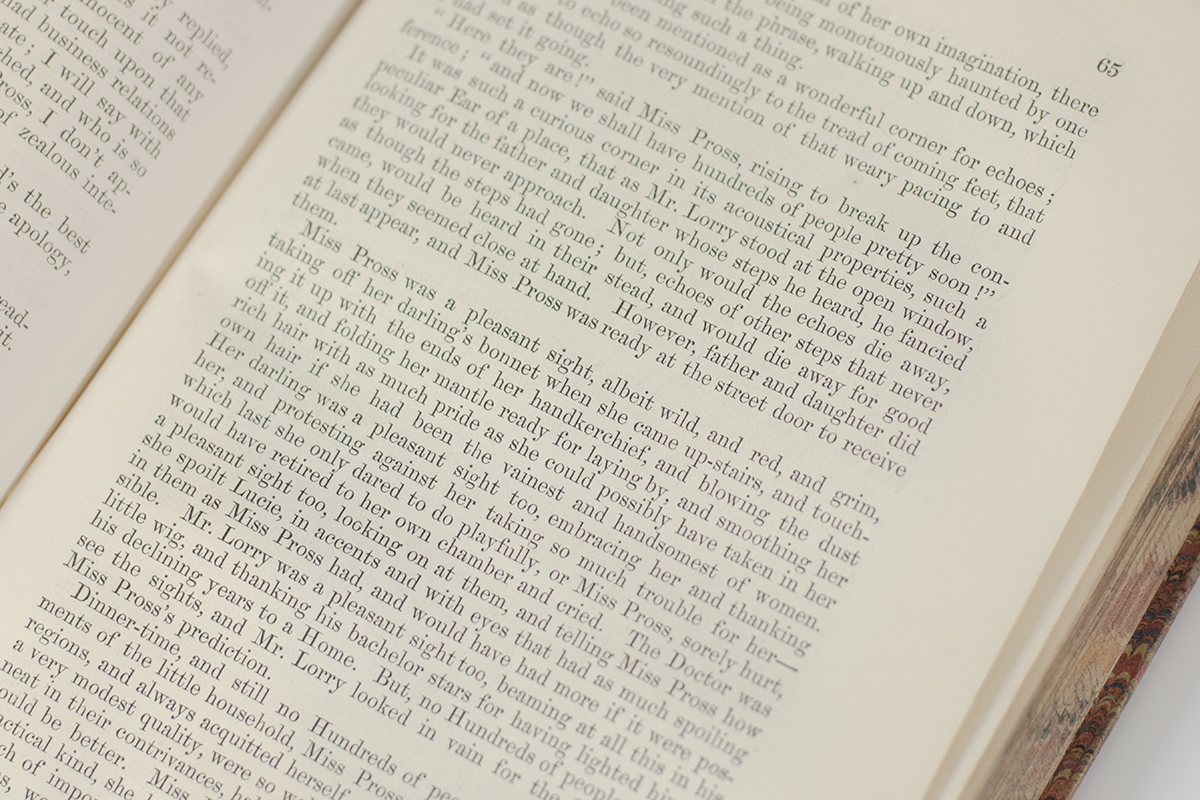 replied,
s it not re-
nocent of any
r touch upon that
ad business relations
ate; I will say with
hed, and who is so
ross, I don't ap-
of zealous inte-
d's the best
e apology,
ead-
it.
65
of her own imagination, there
being monotonously haunted by one
the phrase, walking up and down, which
ng such a thing.
been mentioned as a wonderful corner for echoes;
to echo so resoundingly to the tread of coming feet, that
as though the very mention of that weary pacing to and
had set it going.
"Here they are!" said Miss Pross, rising to break up the con-
ference; "and now we shall have hundreds of people pretty soon!"
It was such a curious corner in its acoustical properties, such a
peculiar Ear of a place, that as Mr. Lorry stood at the open window,
looking for the father and daughter whose steps he heard, he fancied
they would never approach. Not only would the echoes die away,
as though the steps had gone; but, echoes of other steps that never
came, would be heard in their stead, and would die away for good
when they seemed close at hand. However, father and daughter did
at last appear, and Miss Pross was ready at the street door to receive
them.
Miss Pross was a pleasant sight, albeit wild, and red, and grim,
taking off her darling's bonnet when she came up-stairs, and touch-
ing it up with the ends of her handkerchief, and blowing the dust
off it, and folding her mantle ready for laying by, and smoothing her
rich hair with as much pride as she could possibly have taken in her
own hair if she had been the vainest and handsomest of women.
Her darling was a pleasant sight too, embracing her and thanking
her, and protesting against her taking so much trouble for her—
which last she only dared to do playfully, or Miss Pross, sorely hurt,
would have retired to her own chamber and cried. The Doctor was
a pleasant sight too, locking on at them, and telling Miss Pross how
she spoilt Lucie, in accents and with eyes that had as much spoiling
in them as Miss Pross had, and would have had more if it were pos-
sible. Mr. Lorry was a pleasant sight too, beaming at all this in his
little wig, and thanking his bachelor stars for having lighted him
his declining years to a Home. But, no Hundreds of people
see the sights, and Mr. Lorry looked in vain for the
Miss Pross's prediction.
Dinner-time, and still no Hundreds of peo
ments of the little household, Miss Pross
regions, and always acquitted herself
a very modest quality, were so we
neat in their contrivances, ha
ould be better. Miss
actical kind, she
ch of impo